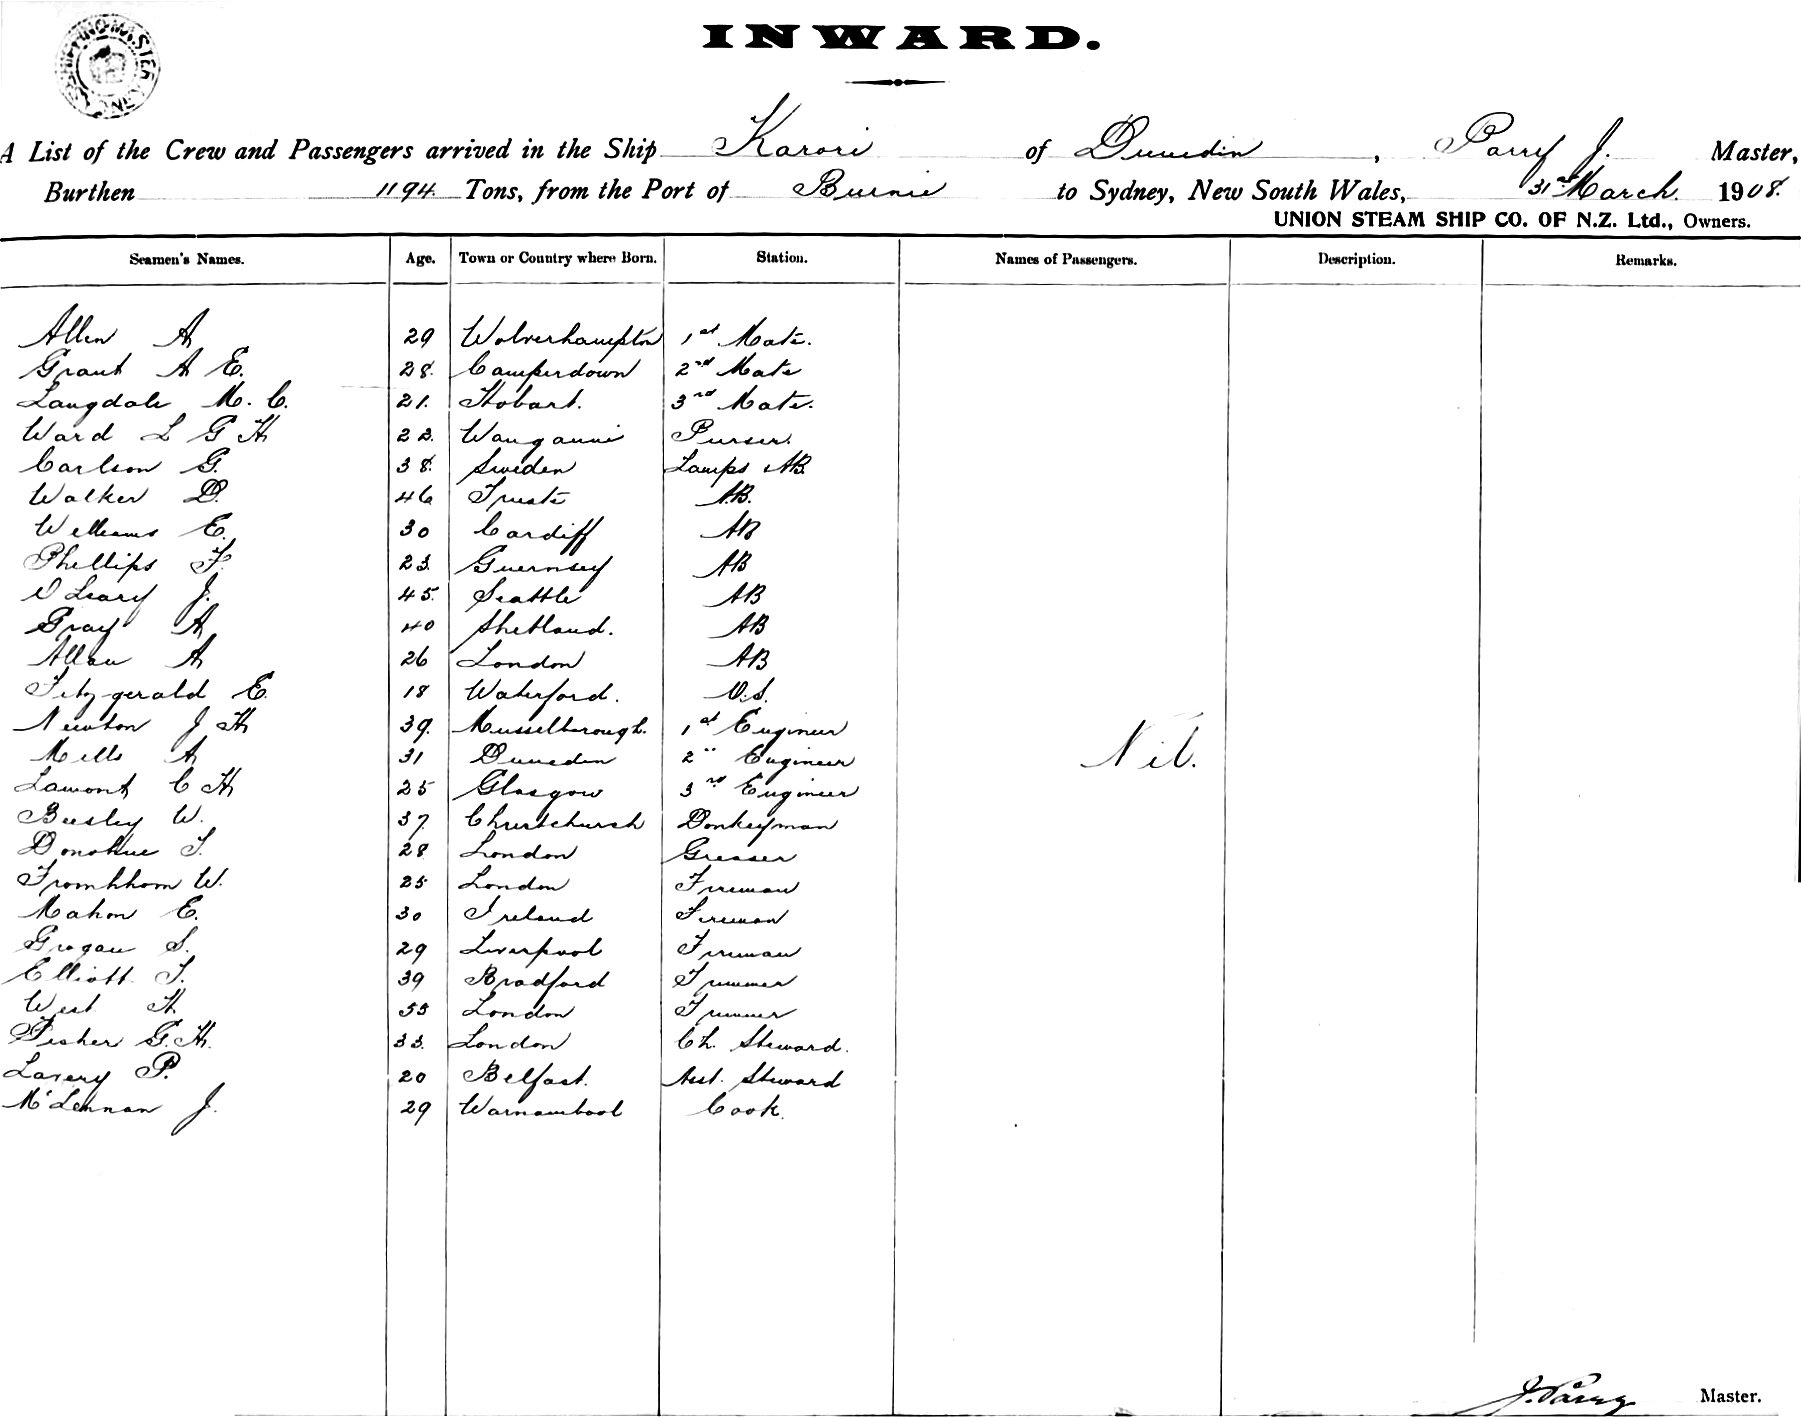 SHIPPING MASTER
INWARD.
A List of the Crew and Passengers arrived in the Ship Karori of Dunedin, Parry J. Master,
Burthen 1194 Tons, from the Port of Burnie to Sydney, New South Wales, 31st March. 1908.
UNION STEAM SHIP CO. OF N.Z. Ltd., Owners.
Seamen's Names. Age. Town or Country where Born. Station. Names of Passengers. Description. Remarks.
Allen A 29 Wolverhampton 1st Mate.
Grant A E. 28. Camperdown 2nd Mate
Langdale M. C. 21. Hobart. 3rd Mate.
Ward L G H 22. Wanganui Purser.
Carlson G. 38. Sweden Lamps AB.
Walker D. 46 Trieste A.B.
Williams E. 30 Cardiff AB
Phillips F. 23. Guernsey AB
O Leary J. 45. Seattle AB
Gray A 40 Shetland. AB
Allan A 26 London AB
Fitzgerald E. 18 Waterford. O.S.
Newton J H 39. Musselborough. 1st Engineer
Mills A 31 Dunedin 2" Engineer
Nil.
Lamont C H 25 Glasgow 3rd Engineer
Beesley W. 37. Christchurch Donkeyman
Donohue T. 28. London Greaser
Fromhhom W. 25 London Fireman
Mahon E. 30 Ireland Fireman
Grogan S. 29 Liverpool Fireman
Elliott T. 39 Bradford Trimmer
West H 55 London Trimmer
Fisher G. H. 33. London Ch. Steward.
Lavery P. 20 Belfast. Asst. Steward
McLennan J. 29 Warnambool Cook.
J. Parry Master.